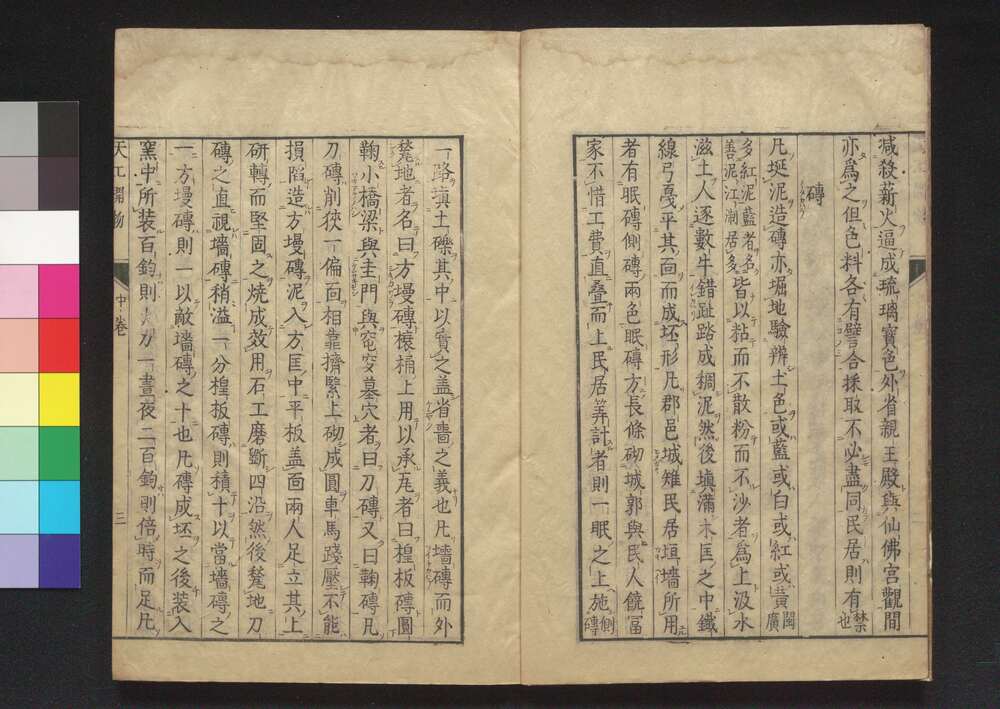 減殺薪火逼成琉璃寶色外省親王殿與仙佛宮觀間
亦爲之但色料各有譬合採取不必盡同民居則有禁也
磚
凡埏泥造磚亦堀地驗辨土色或藍或白或紅或黃閩廣
多紅泥藍者名善泥江浙居多皆以粘而不散粉而不沙者爲上汲水
滋土人逐數牛錯趾踏成稠泥然後塡滿木匡之中鐵
線弓戞平其面而成坯形凡郡邑城雉民居垣墻所用
者有眠磚側磚兩色眠磚方長條砌城郭與民人饒富
家不惜工費直疊而上民居筭計者則一眠之上施側磚
一路塡土礫其中以實之盖省嗇之義也凡墻磚而外
甃地者名曰方墁磚榱桷上用以承瓦者曰楻板磚圓
鞠小橋梁與圭門與窀穸墓穴者曰刀磚又曰鞠磚凡
刀磚削狹一偏面相靠擠緊上砌成圓車馬踐壓不能
損陷造方墁磚泥入方匡中平板盖面兩人足立其上
研轉而堅固之燒成效用石工磨斲四沿然後甃地刀
磚之直視墻磚稍溢一分楻板磚則積十以當墻磚之
一方墁磚則一以敵墻磚之十也凡磚成坯之後装入
窯中所装百鈞則火力一晝夜二百鈞則倍時而足凡
天工開物
中卷
三